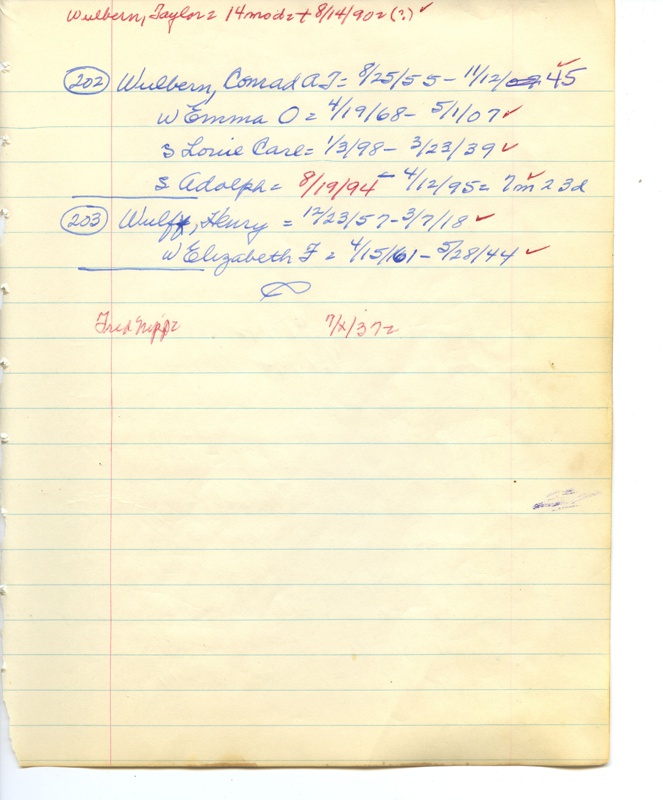 Wulbern, Taylor = 14 mo d = + 8/14/90 = (?) ✓
202 Wulbern, Conrad A J = 8/25/55 - 11/12/ 45 ✓
W Emma O = 4/19/68 - 5/1/07 ✓
S Louie Carl = 1/3/98 - 3/23/39 ✓
S Adolph = 8/19/94 - 4/12/95 = 7m 23d ✓
203 Wulff, Henry = 12/23/57 - 3/7/18 ✓
W Elizabeth F = 4/15/61 - 5/28/44 ✓
Fred 7/2/37 =